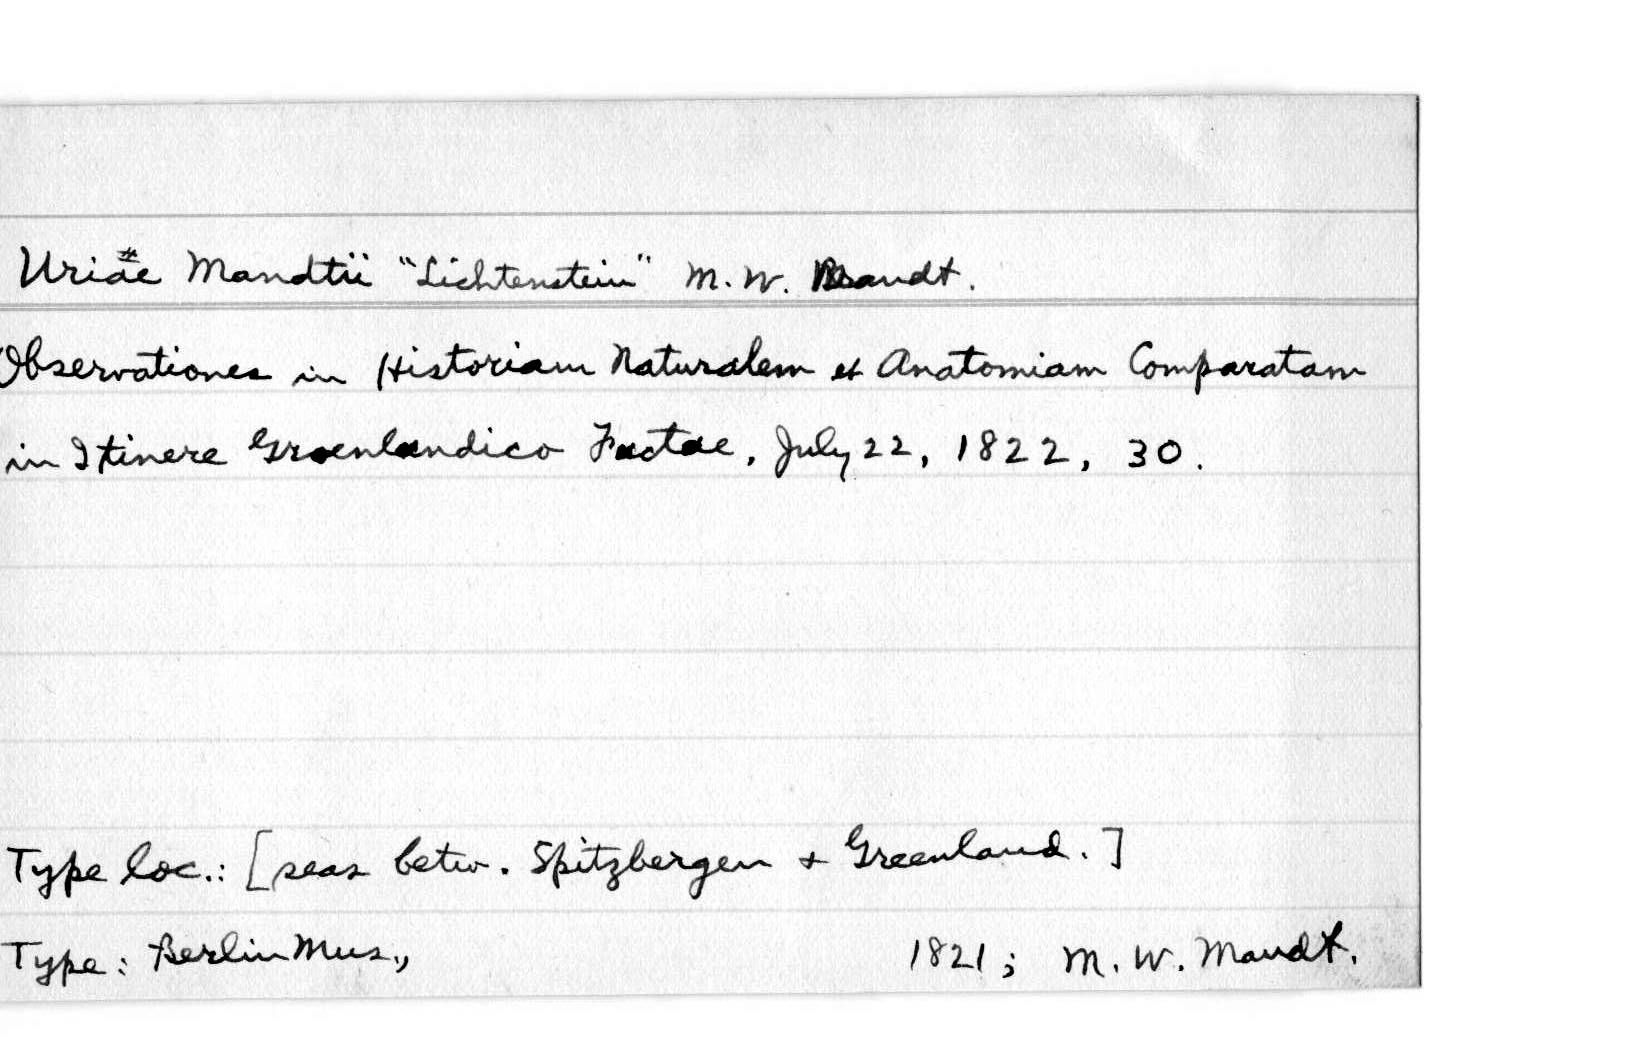 Uriae Mandtii "Lichtenstein" M. W. Mandt.
Observationes in Historiam Naturalem et Anatomiam Comparatam
in Itinere Groenlandico Factae, July 22, 1822, 30.
Type loc.: [seas betw. Spitzbergen + Greenland.]
Type: Berlin Mus., 1821; M. W. Mandt.